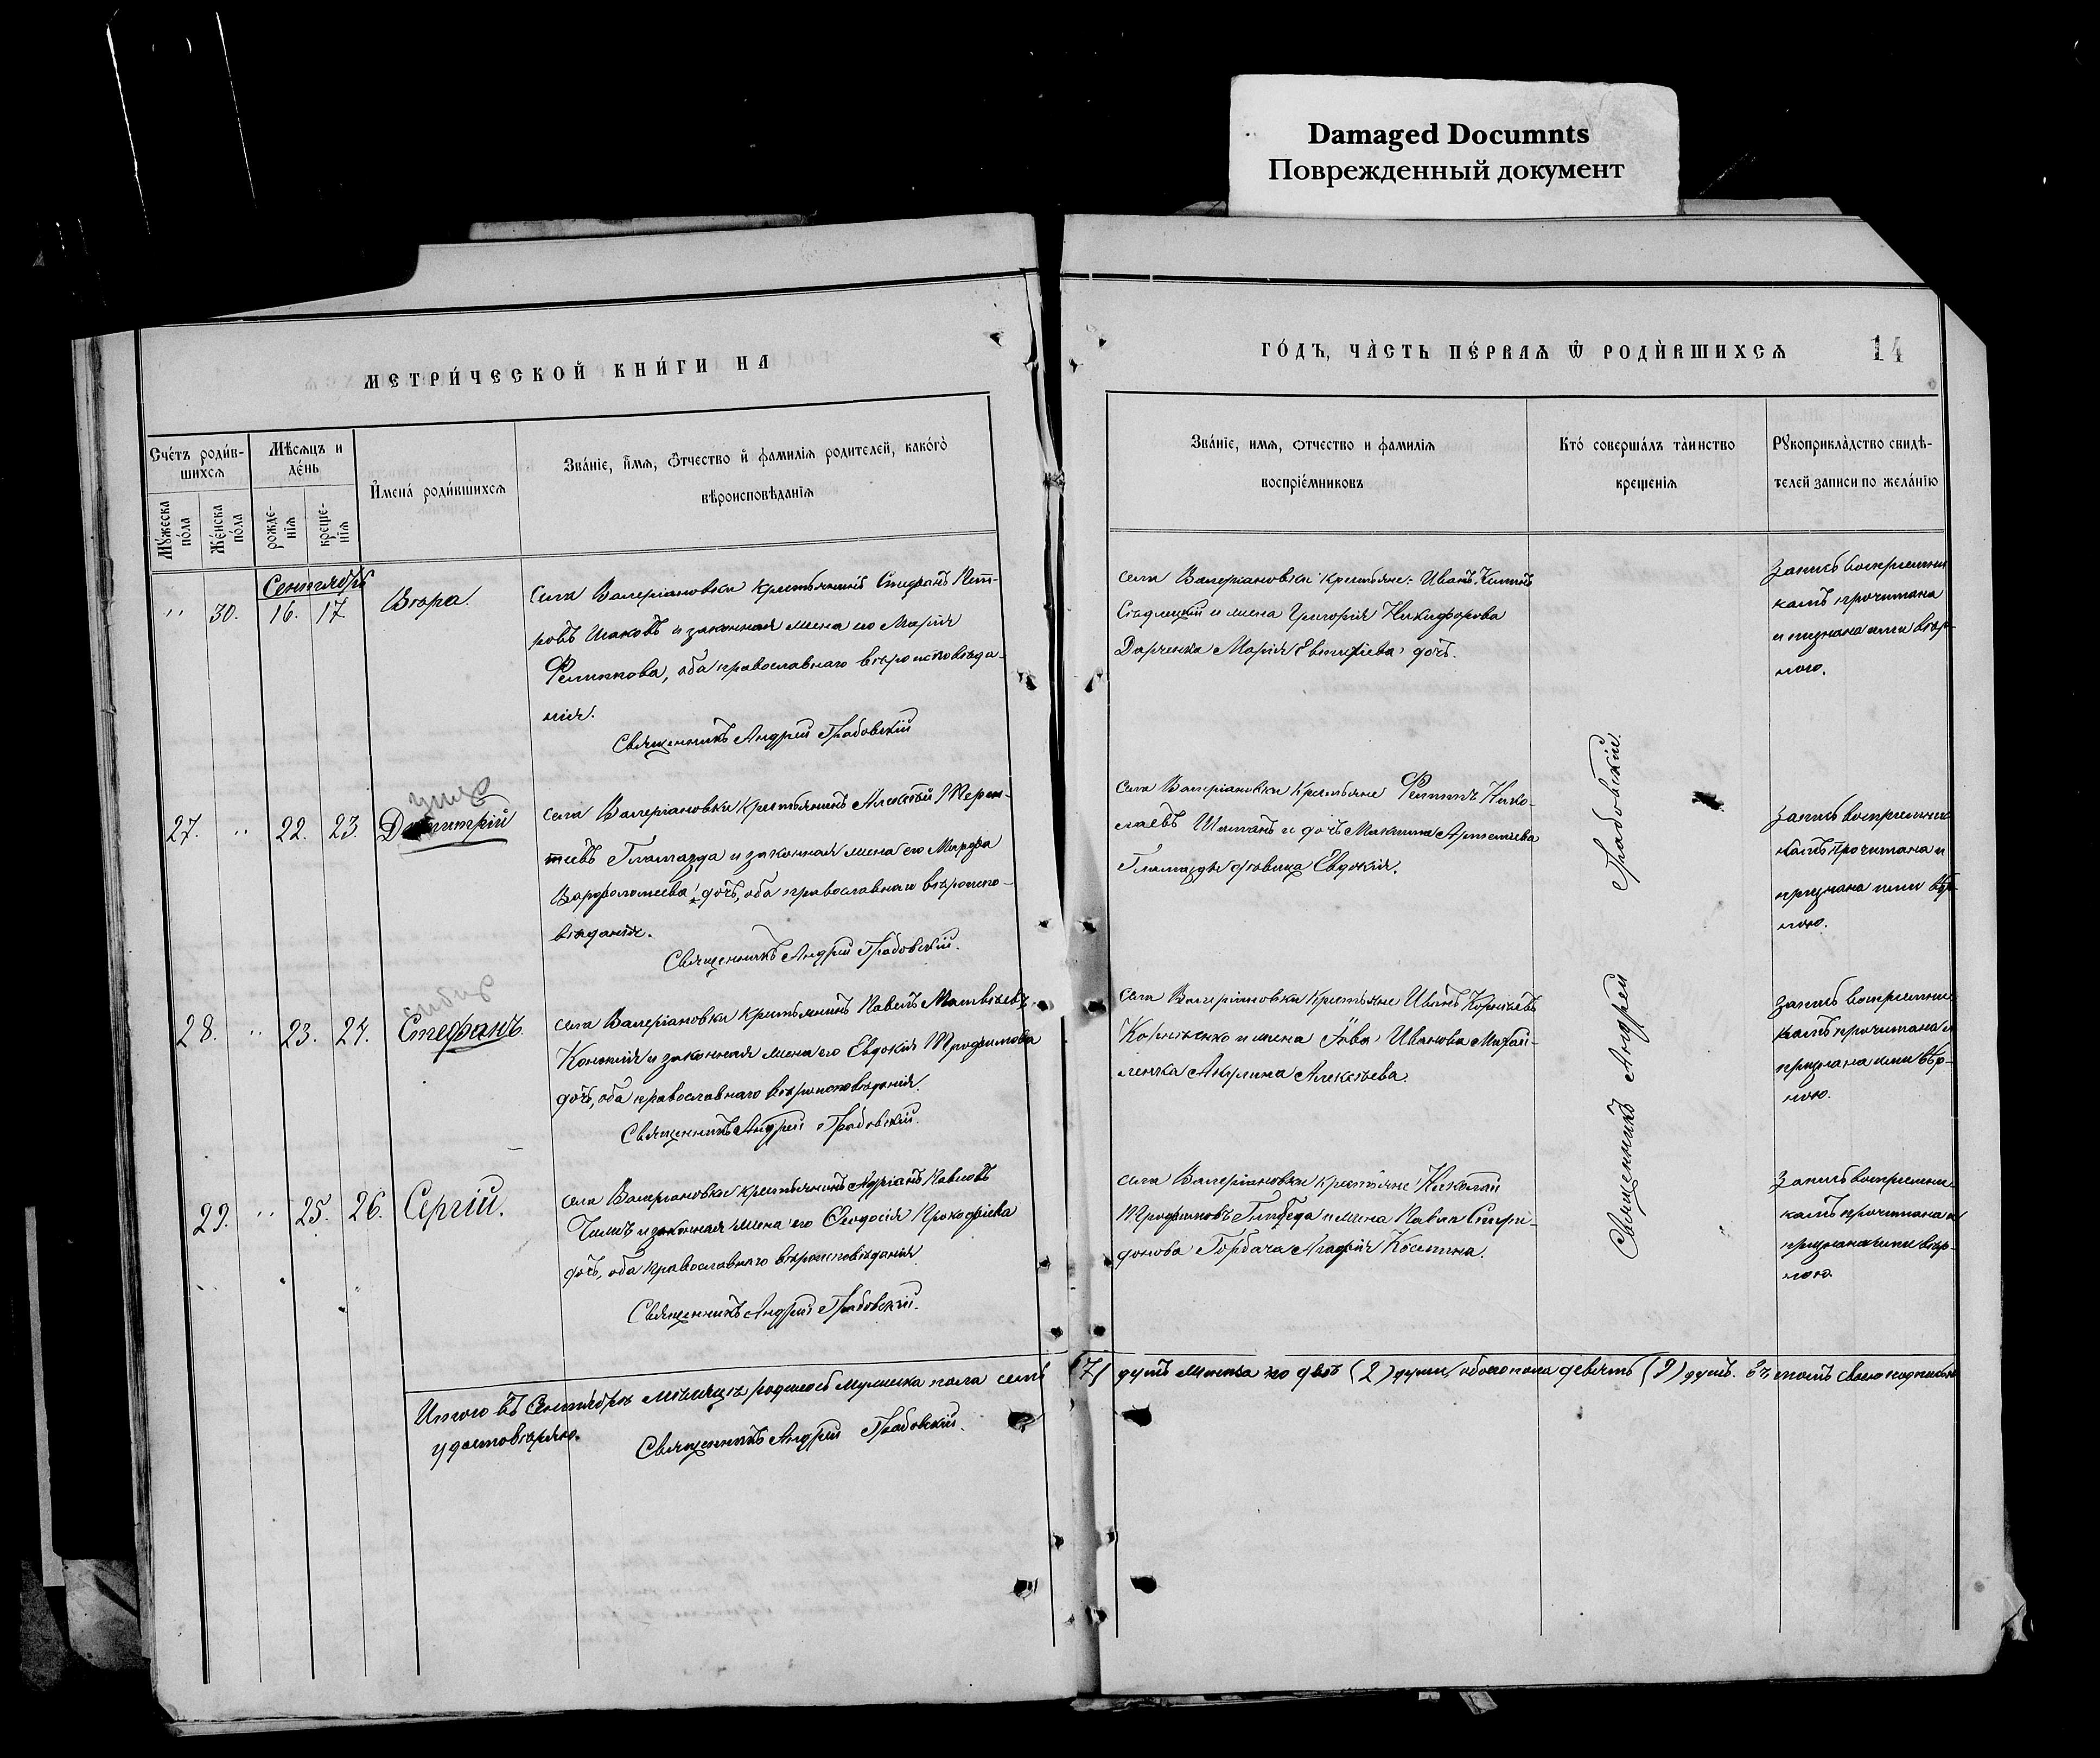 Damaged Documnts
Поврежденный документ
МЕТРИ́ЧЕСКОЙ КНИ́ГИ НА
ГО́ДЪ, ЧА̀СТЬ ПЕ́РВАѦ Ѿ РОДЍВШИХСѦ
14
Сче́тъ роди́в-
шихсѧ
Мꙋ́жеска по́ла
Же́нска по́ла
Мѣ́сѧцъ и
де́нь
рожде-
нїѧ
креще-
нїѧ
И҆мена́ роди́вшихсѧ
Зва́нїе, и҆́мѧ, ѻ҆́тчество и҆ фамилїѧ родителей, како́гѡ
вѣроисповѣ́данїѧ
Зва́нїе, имѧ, ѻтчество и фамилїѧ
воспрїе́мниковъ
Кто́ соверша́лъ та̀инство
креще́нїѧ
Рꙋкоприкла̀дство свидѣ-
телей записи по жела́нїю
Сентябрь
" 30. 16. 17 Вѣра.
села Валеріановки крестьянинъ Стефанъ Пет-
ровъ Исаковъ и законная жена его Марія
Филиппова, оба православнаго вѣроисповѣда-
нія.
Священникъ Андрей Грабовскій
села Валеріановки крестьяне: Иванъ
и жена Григорія Никифорова
Марія дочь.
Запись воспріемни
камъ прочитана
и признана ими вѣр-
ною.
27. " 22. 23. Димитрій
села Валеріановки крестьянинъ Алексѣй Терен-
тіевъ Гламазда и законная жена его Марфа
Варфоломеева дочь, оба православнаго вѣроиспо-
вѣданія.
Священникъ Андрей Грабовскій.
села Валеріановки крестьяне Филиппъ Нико-
лаевъ и дочь Максима Артемьева
Гламазды дѣвица Евдокія.
Запись воспріемни
камъ прочитана и
признана ими вѣр-
ною.
28. " 23. 24. Стефанъ.
села Валеріановки крестьянинъ Павелъ Матвѣевъ
и законная жена его Евдокія Трофимова
дочь, оба православнаго вѣроисповѣданія.
Священникъ Андрей Грабовскій.
села Валеріановки крестьяне Иванъ Корнѣевъ
Корнѣенко и жена Іова Иванова Михай-
ленка Акулина Алексѣева.
Запись воспріемни
камъ прочитана и
признана ими вѣр-
ною.
29. " 25. 26. Сергій.
села Валеріановки крестьянинъ Адріанъ Павловъ
и законная жена его Ѳеодосія Прокофіева
дочь, оба православнаго вѣроисповѣданія.
Священникъ Андрей Грабовскій.
села Валеріановки крестьяне Николай
Трофимовъ и жена Павла Спири-
донова Горбача Агафія Косьмина.
Запись воспріемни
камъ прочитана и
признана ими вѣр-
ною.
Священникъ Андрей Грабовскій.
Итого въ Сентябрѣ мѣсяцѣ родилось мужеска пола семь (7) душъ женска по двѣ (2) души, обоего пола девять (9) душъ. въ томъ свою подписью
удостовѣряю.
Священникъ Андрей Грабовскій.